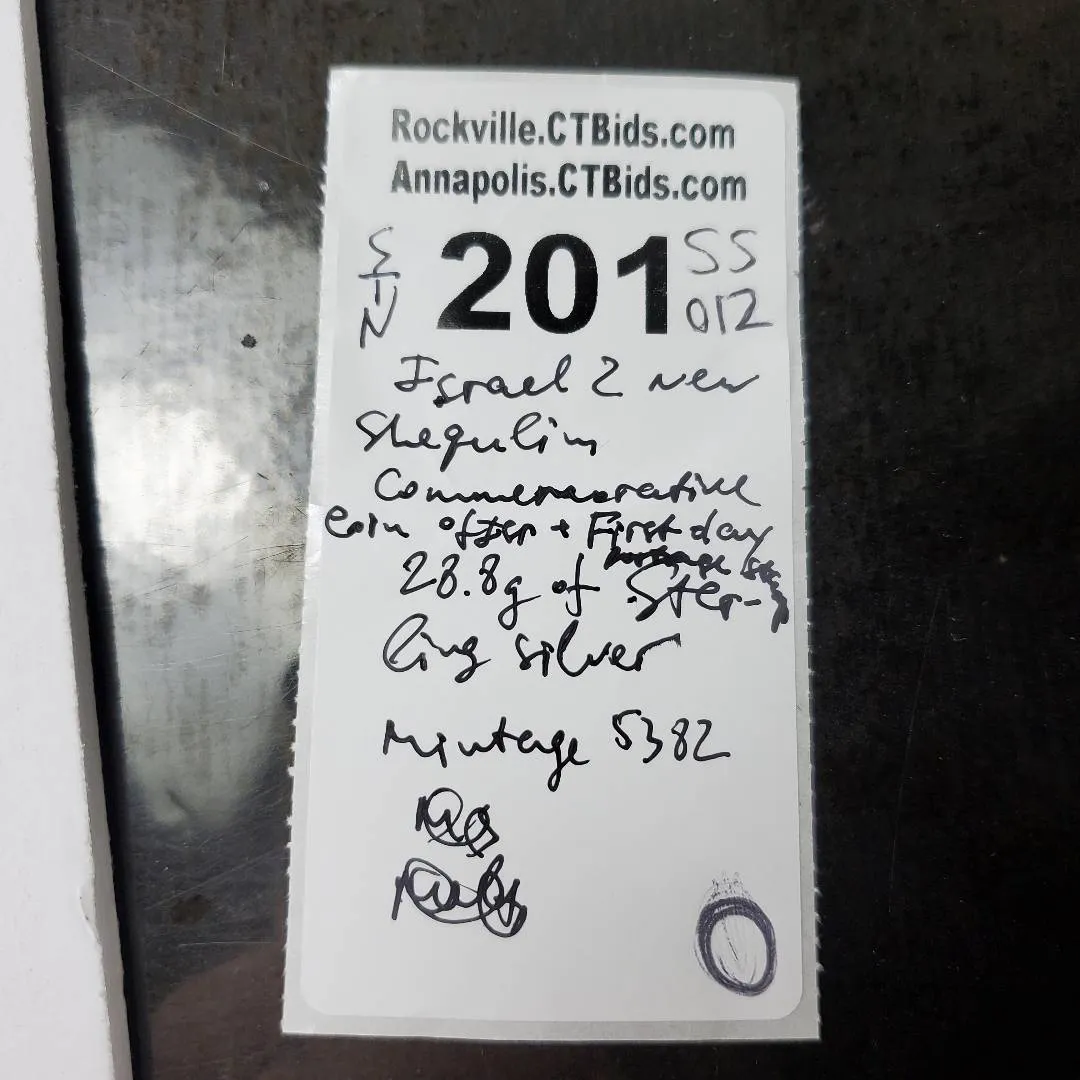 Rockville.CTBids.com
Annapolis.CTBids.com
201 SS
012
Israel 2 New
Shequlim
Commemorative
coin offer + First day
28.8g of Ster-
ling silver
Mintage 5382